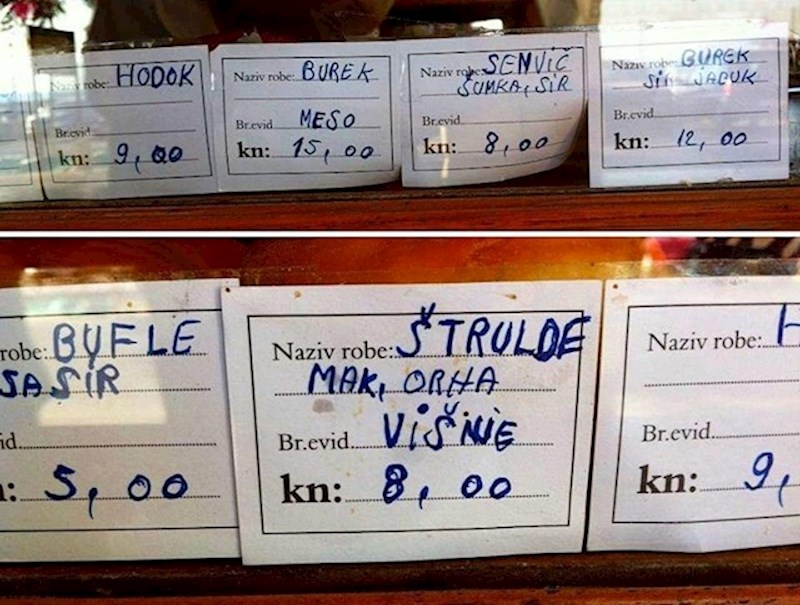 Naziv robe: HODOK
Br.evid
kn: 9,00
Naziv robe: BUREK
Br.evid MESO
kn: 15,00
Naziv robe: SEMVIČ
ŠUMKA, SIR
Br.evid
kn: 8,00
Naziv robe: BUREK
JABUK
Br.evid
kn: 12,00
robe: BUFLE
SA SIR
id
: 5,00
Naziv robe: ŠTRULDE
MAK, ORHA
Br.evid VIŠNJE
kn: 8,00
Naziv robe: H
Br.evid
kn: 9,